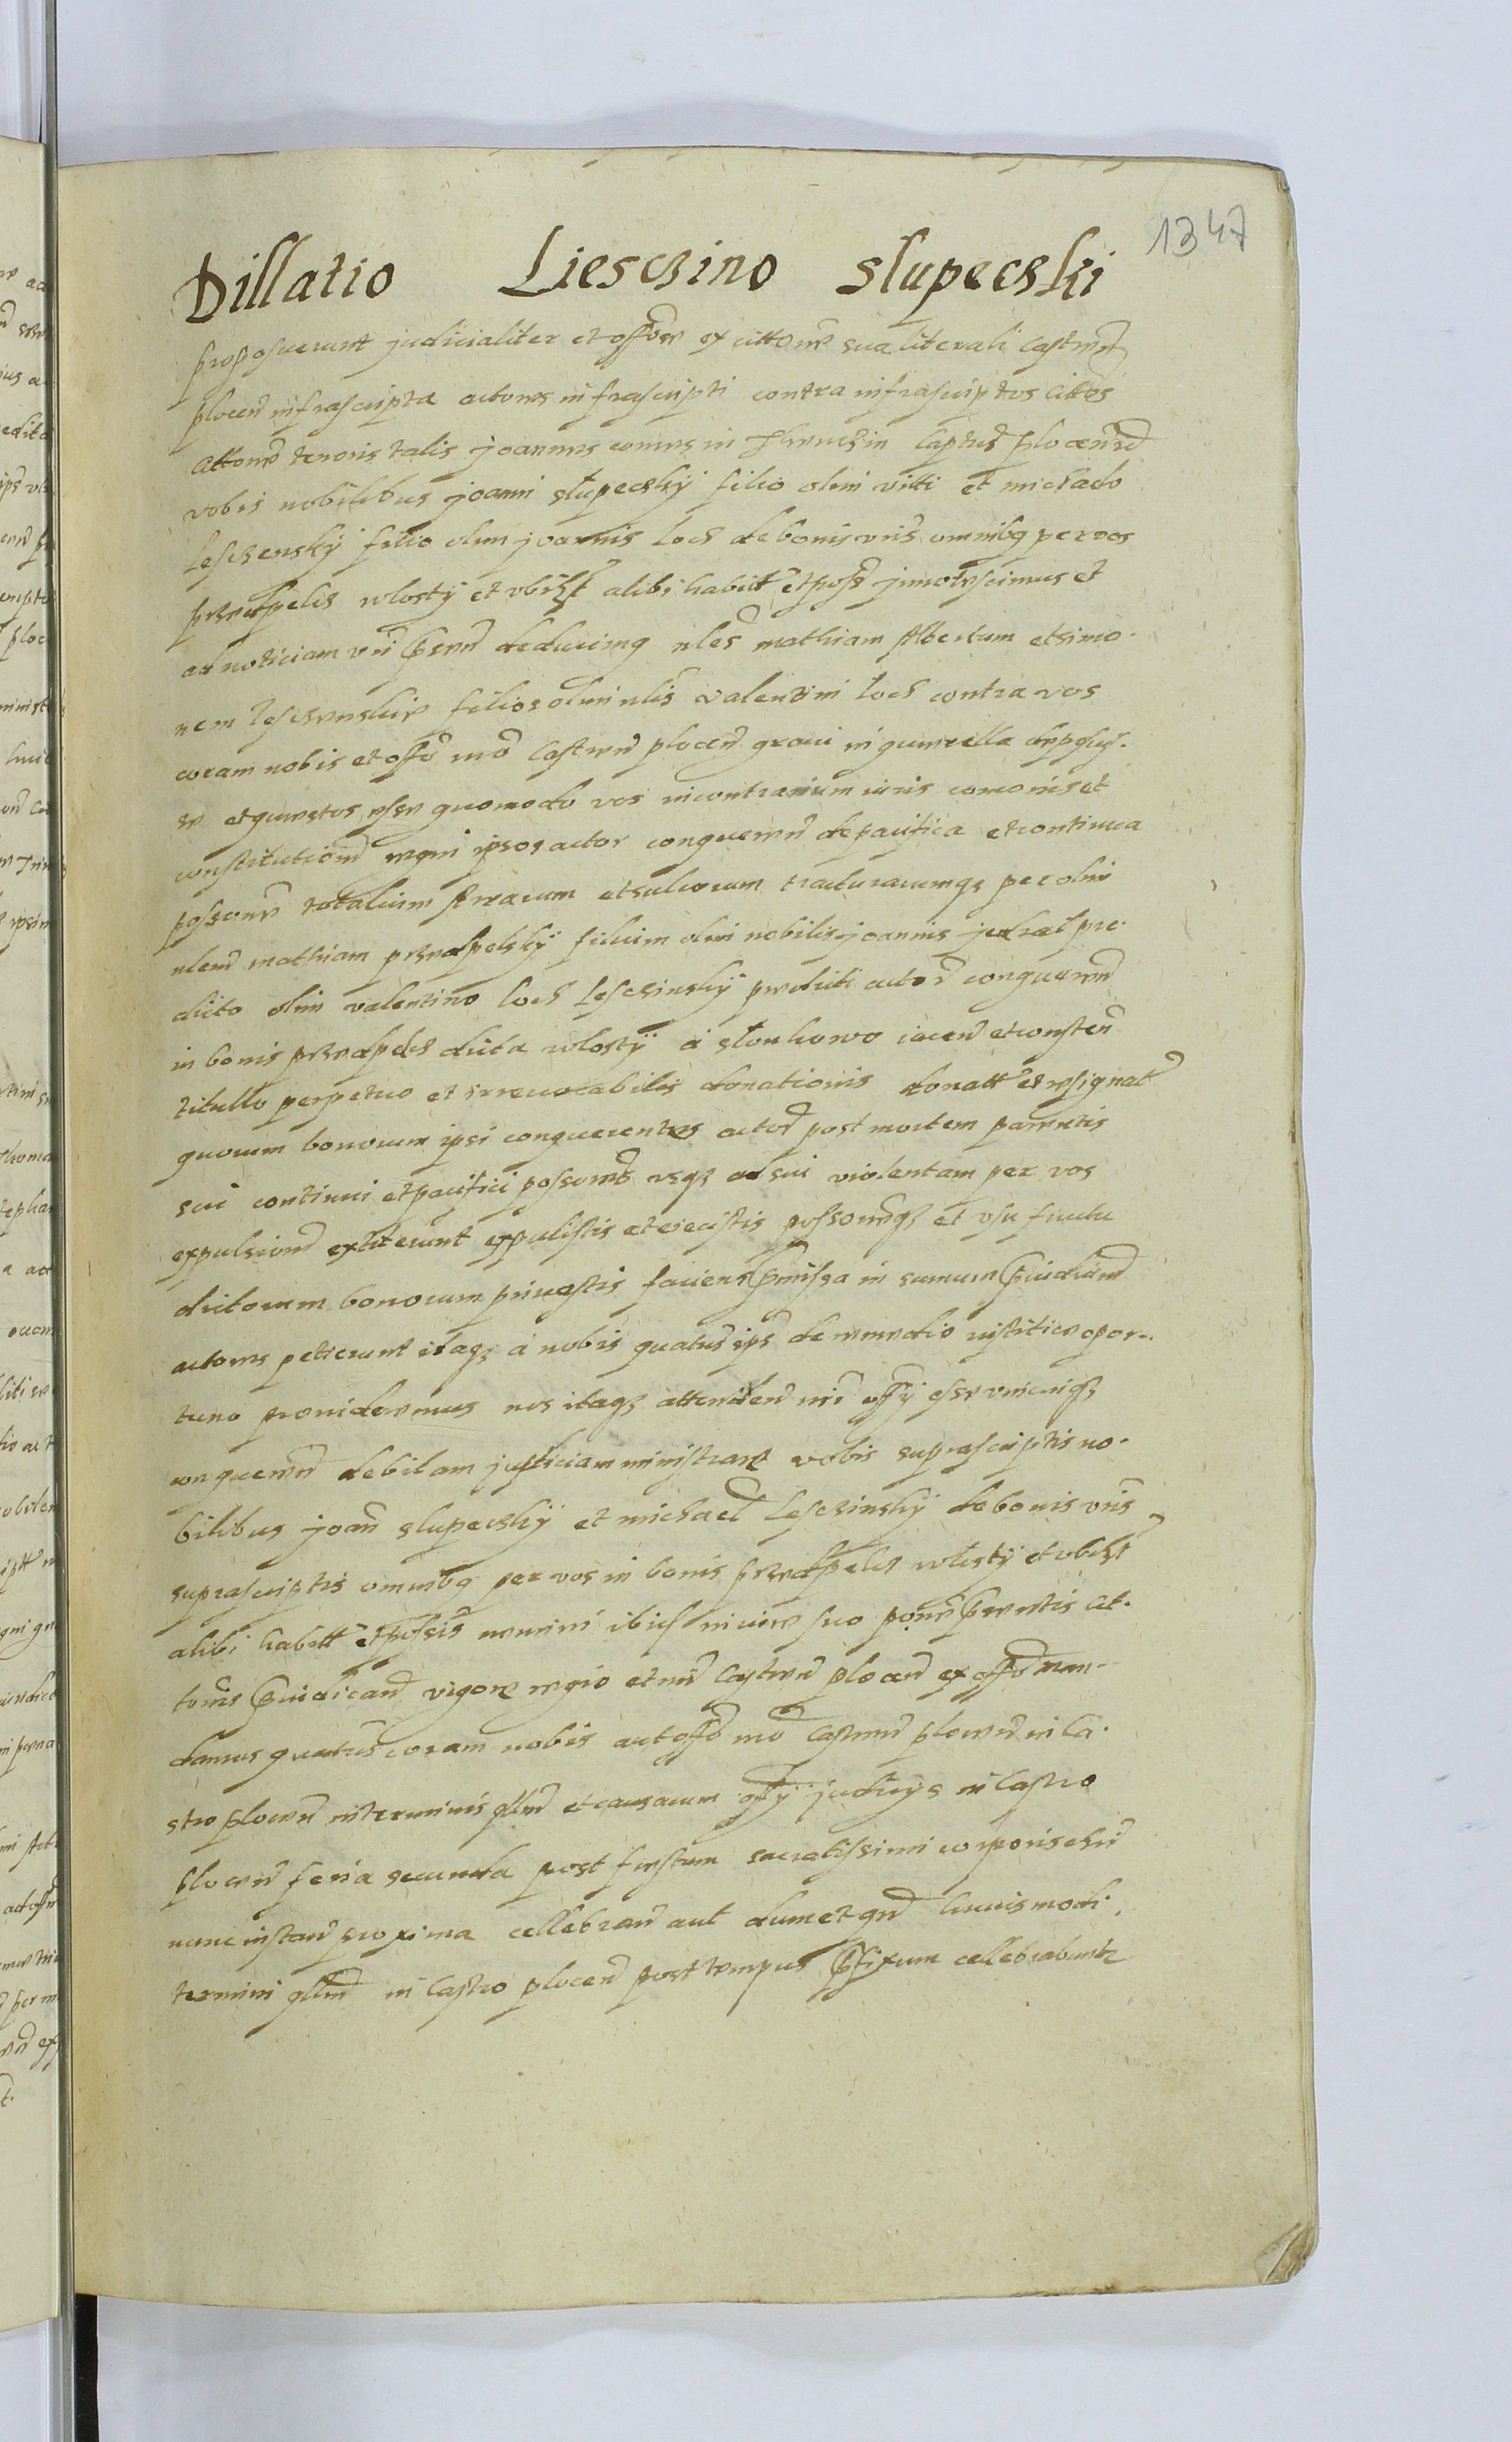 1347
Dillatio Liesczino Slupeczki
Proposuerunt judicialiter et offose ex cittone sua literali Castren
Plocen infrascripta actores infrascripti contra infrascriptos cittos
Cittone tenoris talis Joannes comes in Captus Plocen
vobis nobilibus Joanni Slupeczky filio olim vitti et michaelo
Lesczensky filio olim joannis Loch de bonis vris omnibq per vos
wlosty et vbilzt alibi habitt et poss jnnotescimus et
ad noticiam vri deducimq nles mathiam Albertum et simo-
nem Lesczenskie filios olim nlis valentini Loch contra vos
coram nobis et offo nro Castren plocen graui in querella
se et questos esse quomodo vos in contrarium iuris comonis et
constitutiom regni ipsos actor conqueren de pacifica et continua
possone totalium Arearum et sulcorum per olim
nlem mathiam filium olim nobilis joannis pre-
dicto olim valentino Loch Lesczinsky predicti actor conqueren
in bonis dicta wlosty a slonkowo iacen et consten
titullo perpetuo et irreuocabilis donationis donatt et resignat
quorum bonorum ipsi conquerentes actor post mortem parentis
sui continui et pacifici possores vsqz ad sui violentam per vos
expulsionem extiterunt expulistis et eiecistis possoneqz et vsu fructu
dictorum bonorum priuastis faciens pmissa in sumum piudicium
actores petierunt itaqz a nobis quatus ips de remedio iustitie opor-
tuno prouideremus nos itaqz attenden nri offy esse vnicuiqz
conqueren debitam justiciam ministrare vobis suprascriptis no-
bilibus joan slupeczky et michael Lesczinsky de bonis vris
suprascriptis omnibq per vos in bonis wlosty et vbilzt
alibi habitt et possis nemini ibid in iure suo pone ac-
toris piudicand vigore regio et nro Castren plocen ex offo man-
damus quatus coram nobis aut offo nro Castren plocen in Ca-
stro plocen in terminis qllm et causarum offy judicys in Castro
Plocen feria secunda post festum sacratissimi corporis chri
nunc instan proxima cellebran aut dum et qn huiusmodi
termini qllm in Castro plocen post tempus pfixum cellebrabuntr